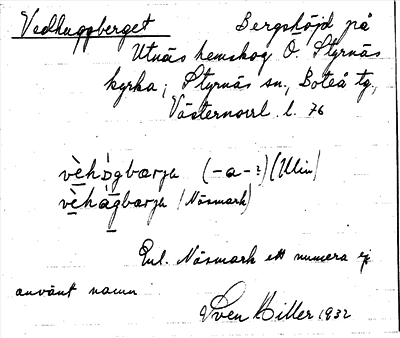 Vedhuggberget Bergshöjd på
Utnäs hemskog O. Styrnäs
kyrka, Styrnäs sn, Boteå tg,
Västernorrl. l. 76
vèhògbærja (-a-?) (Ulin)
vèhágbærja (Näsmark)
Enl. Näsmark ett numera ej
använt namn
Sven Hiller 1932